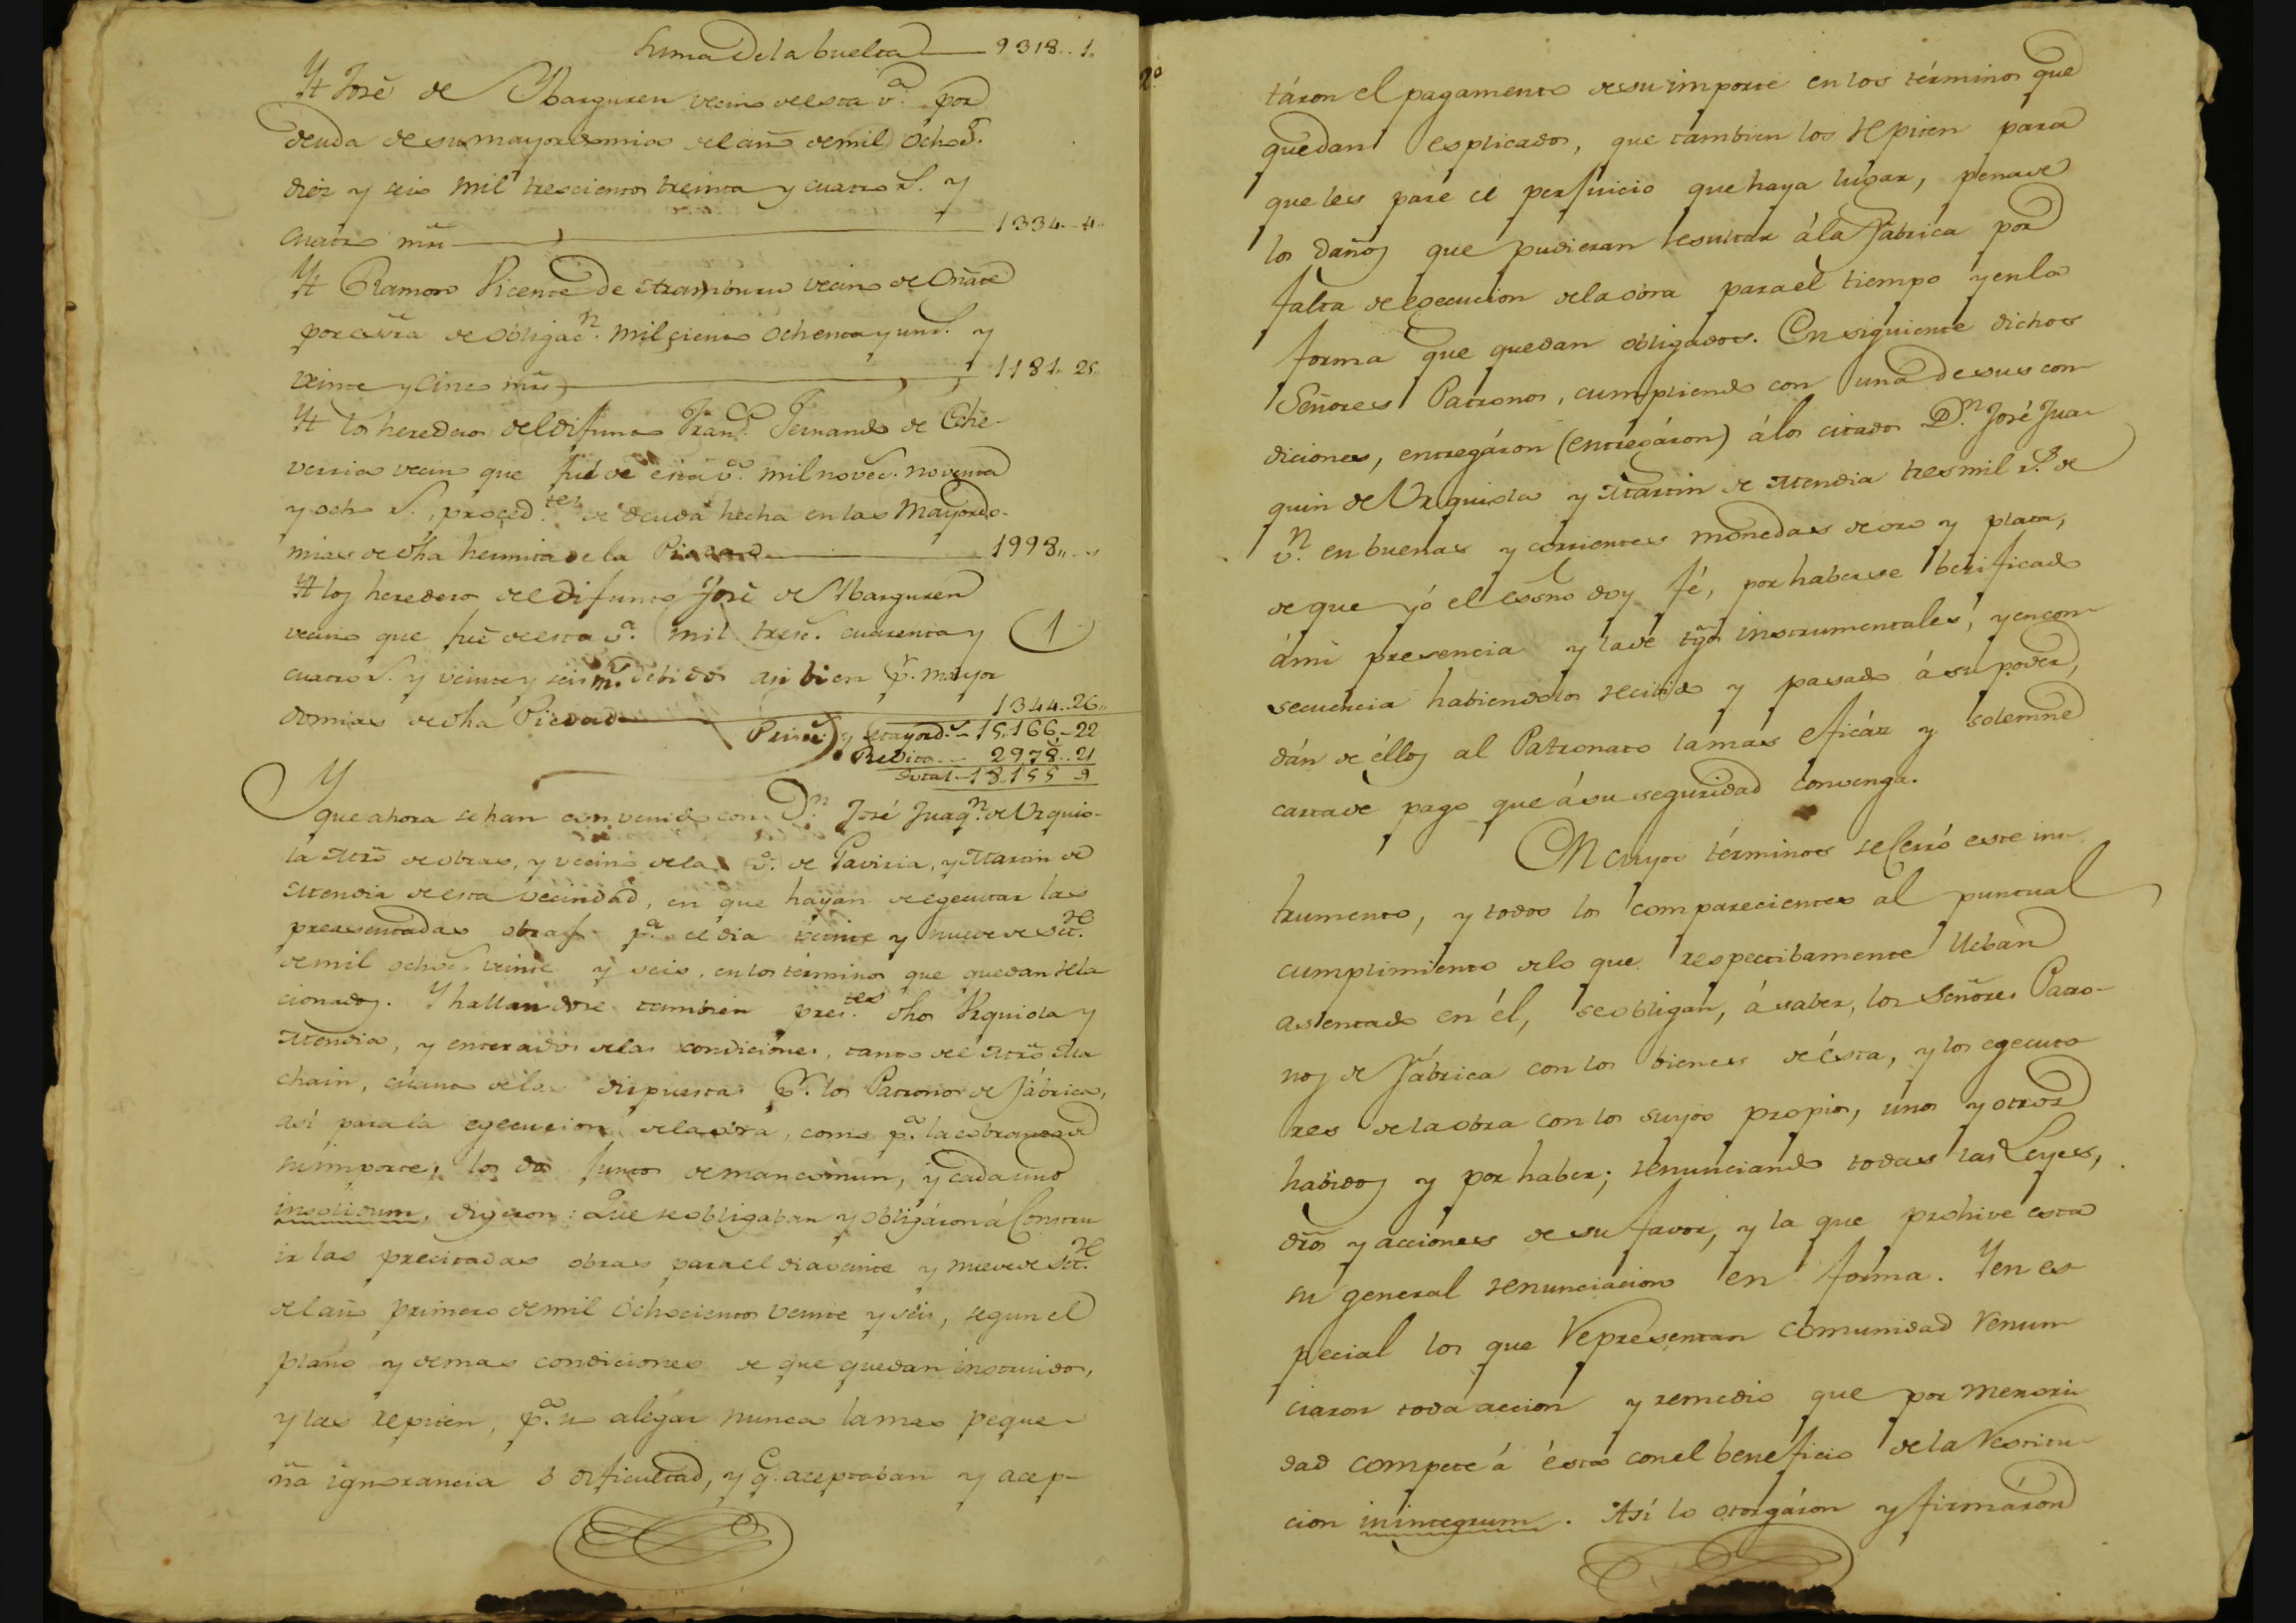 Suma de la buelta 9318.. 1.
Yt José de Ybarguren vecino de esta v.ª por
deuda de su mayordomia del año de mil ochoc.s
diez y seis mil trescientos treinta y cuatro r.s y
cuatro mrs 1334.. 4..
Yt Ramon Vicente de vecino de Oñate
por esc̃ra de obligac.n mil ciento ochenta y un r.s y
veinte y cinco mrs 1181.. 25..
Yt los herederos del difunto Fran.co Fernando de Eche-
verria vecino que fué de esta v.ª mil novec.s noventa
y ocho r.s, proced.tes de deuda hecha en las Mayordo-
mias de dha hermita de la Piedad 1998,,
Yt los herederos del difunto José de Ybarguren
vecino que fué de esta v.ª mil tresc.s cuarenta y (1
cuatro r.s y veinte y seis m.s debidos asi bien p.r mayor
domias de dha Piedad 1344..26..
y Mayord.s 15.166-22
Redito 2978..21
Total-18.155 9
Y
que ahora se han convenido con D.n José Juaq.n de Urquio-
la Mrõ de obras, y vecino de la v.ª de Gaviria, y Martin de
Mendia de esta vecindad, en que hayan de egecutar las
preasentadas obras p.ª el dia veinte y nueve de Set.re
de mil ochoc.s veinte y seis, en los términos que quedan rela
cionados. Y hallandose tambien pres.tes dhos Urquiola y
Mendia, y enterados de las condiciones, tanto del Mrõ Ma
chain, cuanto de las dispuestas p.r los Patronos de Fábrica,
así para la egecucion de la obra, como p.ª la cobranza de
su importe, los dos juntos de mancomun, y cada uno
insolidum, digeron: Que se obligaban y obligáron á Constru
ir las precitadas obras para el dia veinte y nueve de Set.re
del año primero de mil Ochocientos veinte y seis, segun el
plano y demas condiciones de que quedan instruidos,
y las repiten, p.ª no alegar nunca la mas peque-
ña ignorancia ó dificultad, y q.e aceptaban y acep-
2º
táron el pagamento de su importe en los términos que
quedan esplicados, que tambien los repiten para
que les pare el perjuicio que haya lugar, pena de
los daños que pudieran resultar á la Fábrica por
falta de egecucion de la obra para el tiempo y en la
forma que quedan obligados. En siguiente dichos
Señores Patronos, cumpliendo con una de sus con
diciones, entregáron (entregáron) á los citados D.n José Jua-
quin de Urquiola y Martin de Mendia tres mil r.s de
v.n en buenas y corrientes monedas de oro y plata,
de que yó el essnõ doy fé, por haberse berificado
á mi presencia y la de tgõs instrumentales, y en con
secuencia habiendolos recibido y pasado á su poder,
dán de éllos al Patronato la mas eficáz y solemne
carta de pago que á su seguridad convenga.
En cuyos términos se Cerró este ins-
trumento, y todos los comparecientes al puntual
cumplimiento de lo que respectibamente lleban
asentado en él, se obligan, á saber, los Señores Patro-
nos de Fábrica con los bienes de ésta, y los egecuto
res de la obra con los suyos propios, unos y otros
habidos y por haber; renunciando todas las Leyes,
drõs y acciones de su favor, y la que prohive esta
su general renunciacion en forma. Y en es
pecial los que Representan comunidad renun
ciaron toda accion y remedio que por menori
dad compete á ésta con el beneficio de la restitu-
cion in integrum. Así lo otorgáron y firmáron